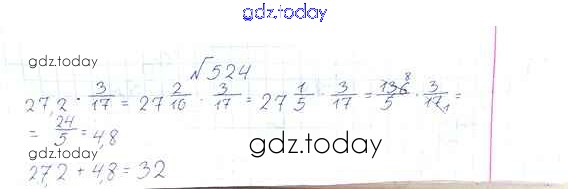 gdz.today
№524
gdz.today
27,2 · 3/17 = 27 2/10 · 3/17 = 27 1/5 · 3/17 = 136 8/5 · 3/17 1 =
= 24/5 = 4,8
gdz.today
gdz.today
27,2 + 4,8 = 32